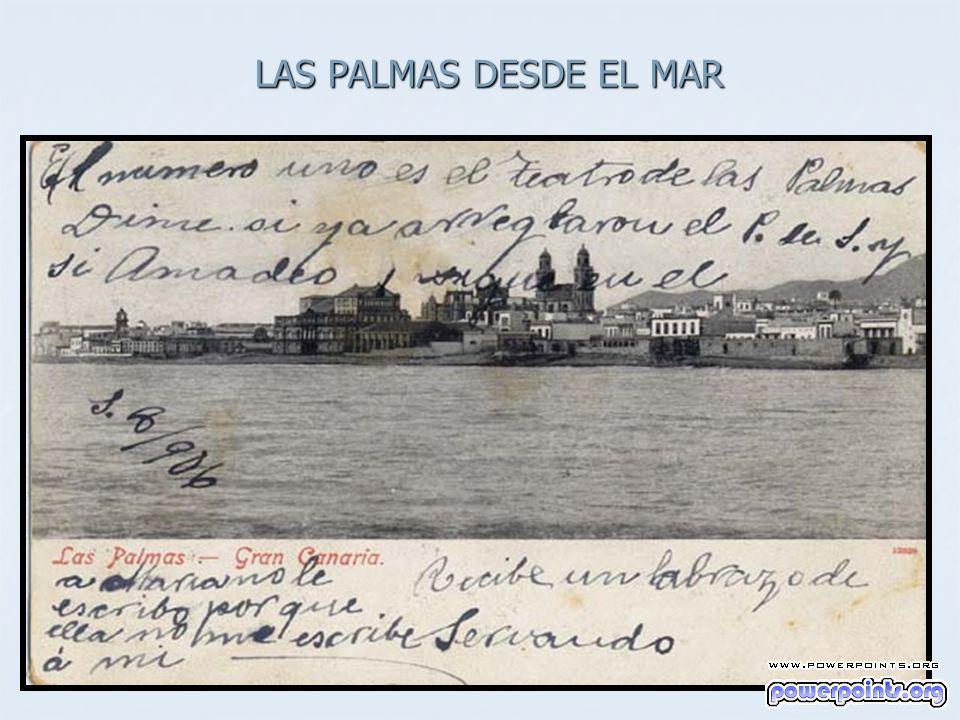 LAS PALMAS DESDE EL MAR
El numero uno es el teatro de las Palmas
Dime si ya arreglaron el P. de S. y
si Amadeo sigue en el
S. 8/906
Las Palmas — Gran Canaria.
a Maria no le
escribo porque
ella no me escribe
á mi
Recibe un abrazo de
Servando
WWW.POWERPOINTS.ORG
powerpoints.org